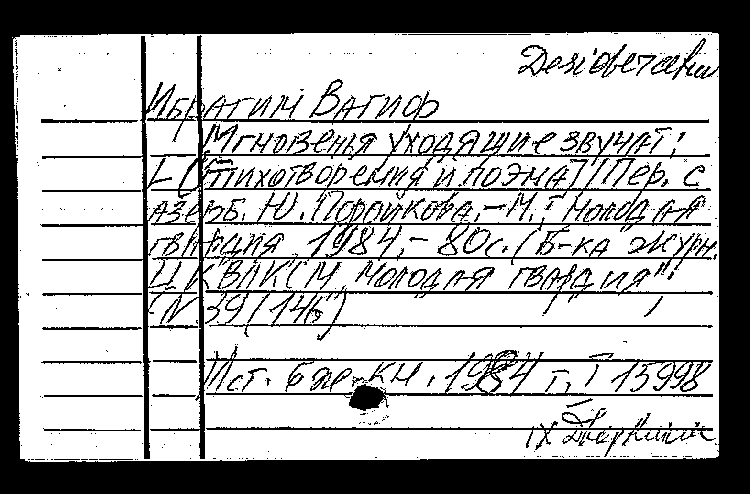 Ибрагим Вагиф
Мгновенья уходящие звучат:
[Стихотворения и поэма] / Пер. с
азерб. Ю. Поройкова. – М.: Молодая
гвардия, 1984. – 80с. (Б-ка журн.
ЦК ВЛКСМ "Молодая гвардия";
№ 39 (146)
Ист. бже-кн. 1984 г, Т 15998
IX